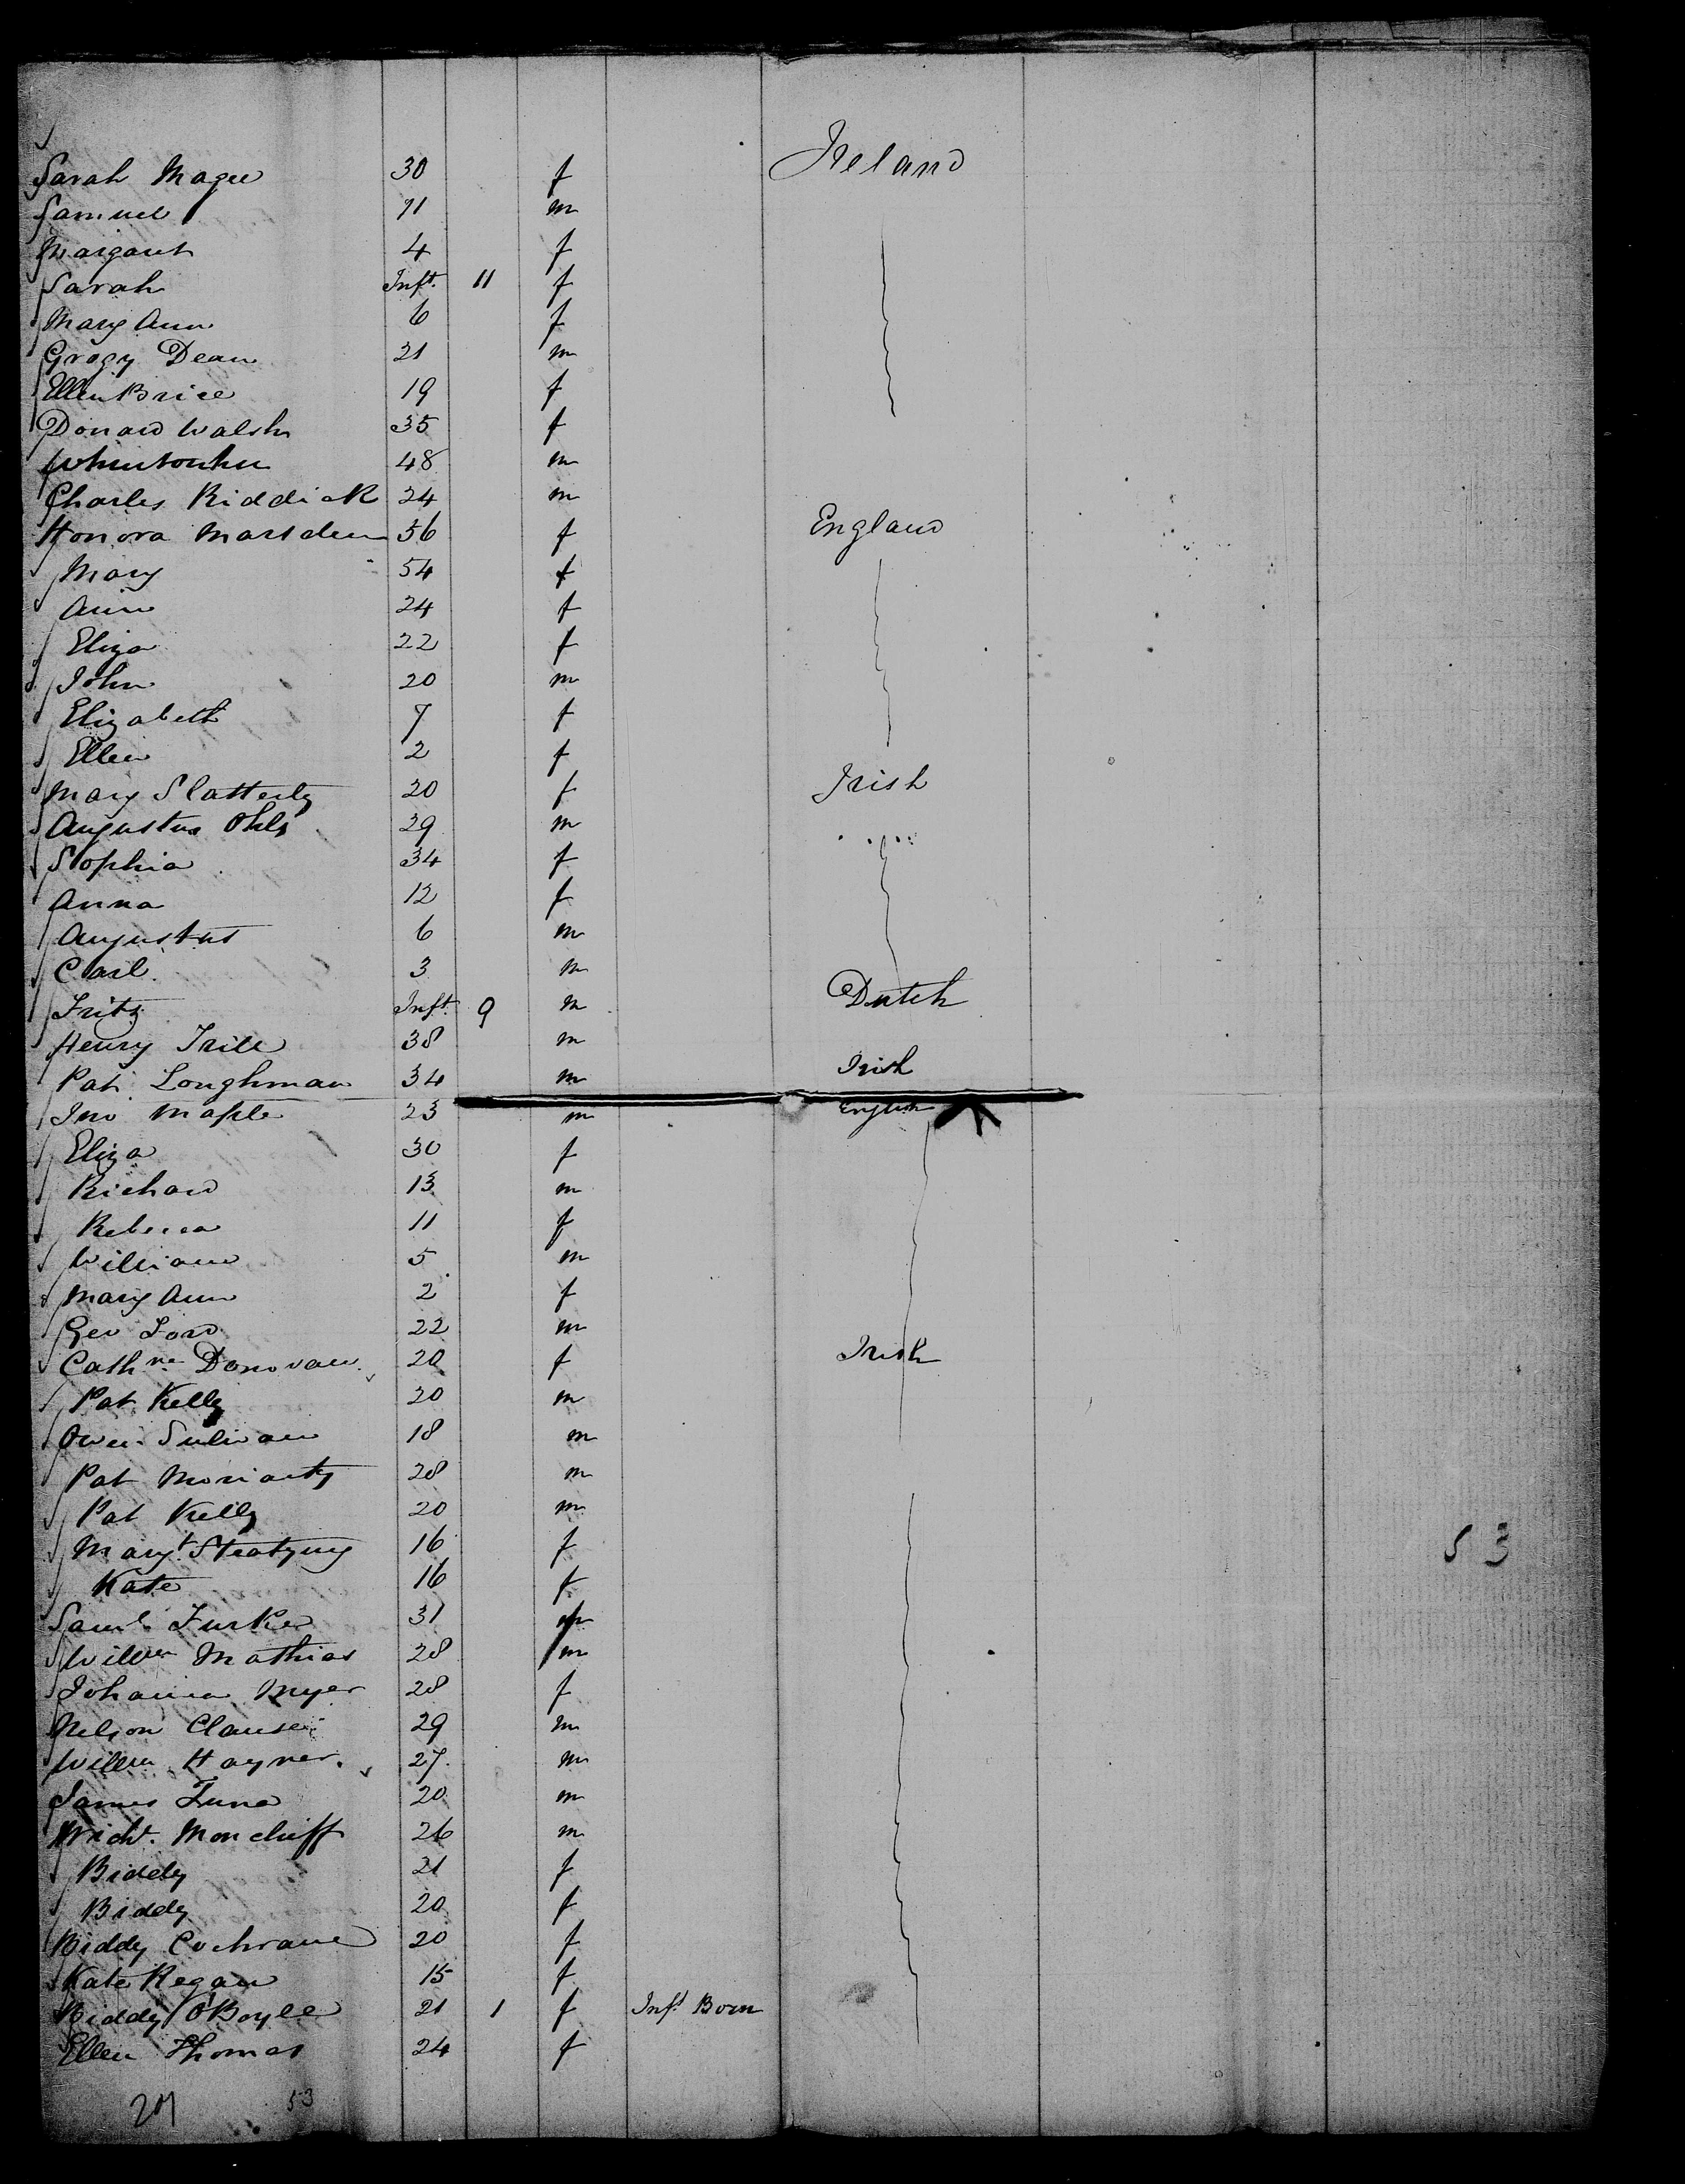 Ireland
Sarah Magee 30 f
Samuel 11 m
Margaret 4 f
Sarah Inft. 11 f
Mary Ann 6 f
Dean 21 m
Ellen Brice 19 f
Walsh 35 f
48 m
Charles Riddick 24 m
Honora Marsden 56 f England
Mary 54 f
Ann 24 f
Eliza 22 f
John 20 m
Elizabeth 7 f
Ellen 2 f
Mary Slatterly 20 f Irish
Augustus Ohls 29 m
Sophia 34 f
Anna 12 f
Augustus 6 m
Carl 3 m
Fritz Inft. 9 m Dutch
Henry 38 m
Pat Loughman 34 m Irish
Jno Maple 23 m English
Eliza 30 f
Richard 13 m
Rebecca 11 f
William 5 m
Mary Ann 2 f
Geo Ford 22 m
Cathne Donovan 20 f Irish
Pat Kelly 20 m
Owen Sulivan 18 m
Pat Moriarty 28 m
Pat Kelly 20 m
Margt 16 f
Kate 16 f
Saml 31 m
Willm Mathias 28 m
Johanna Myer 28 f
Nelson Clausen 29 m
Willm Hayner 27 m
James 20 m
26 m
Biddy 21 f
Biddy 20 f
Biddy Cochrane 20 f
Kate Regan 15 f
Biddy O'Boyle 21 1 f Inft Born
Ellen Thomas 24 f
53
53